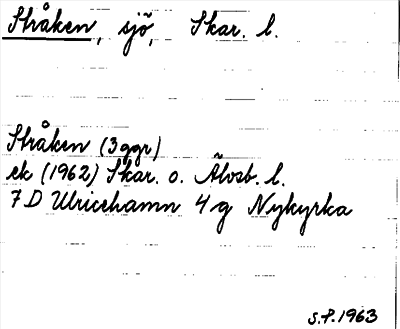 Stråken, sjö, Skar. l.
Stråken (3ggr)
ek (1962) Skar. o. Älvsb. l.
7 D Ulricehamn 4 g Nykyrka
S.F. 1963